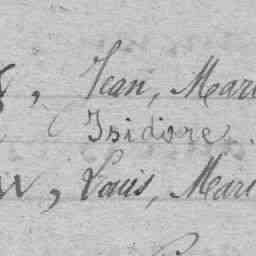 , Jean, Mari
Isidore.
, Louis, Mari